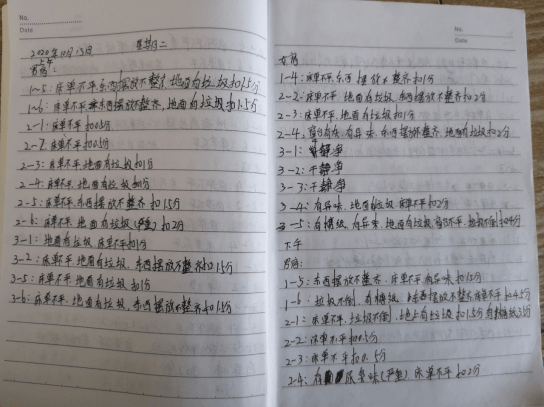 No.
Date
2020年10月13日 星期二
上午
男宿:
1-5:床单不平,东西摆放不整齐,地面有垃圾扣1.5分
1-6:床单不平,东西摆放不整齐,地面有垃圾扣1.5分
2-1:床单不平扣0.5分
2-2:床单不平扣0.5分
2-3:床单不平,地面有垃圾扣1分
2-4:床单不平,地面有垃圾扣1分
2-5:床单不平,东西摆放不整齐扣1.5分
2-6:床单不平,地面有垃圾(严重)扣2分
3-1:地面有垃圾,床单不平扣1分
3-2:床单不平,地面有垃圾,东西摆放不整齐扣1.5分
3-5:床单不平,地面有垃圾扣1分
3-6:床单不平,地面有垃圾,东西摆放不整齐扣1.5分
No.
Date
女宿
1-4:床单不平,东西摆放不整齐扣1分
2-2:床单不平,地面有垃圾,东西摆放不整齐扣2分
2-3:床单不平,地面有垃圾扣1分
2-4:有异味,东西摆放不整齐,地面有垃圾扣2分
3-1:干净
3-2:干净
3-3:干净
3-4:有异味,地面有垃圾,床单不平扣2分
3-5:有辣条,有异味,地面有垃圾,不平,垃圾不倒扣4分
下午
男宿:
1-5:东西摆放不整齐,床单不平,有异味扣1.5分
1-6:垃圾不倒,有辣条,东西摆放不整齐,床单不平扣4.5分
2-1:床单不平,垃圾不倒,地上有垃圾扣1.5分
2-2:床单不平扣0.5分
2-3:床单不平扣0.5分
2-4:有尿臭味(严重)床单不平扣2分